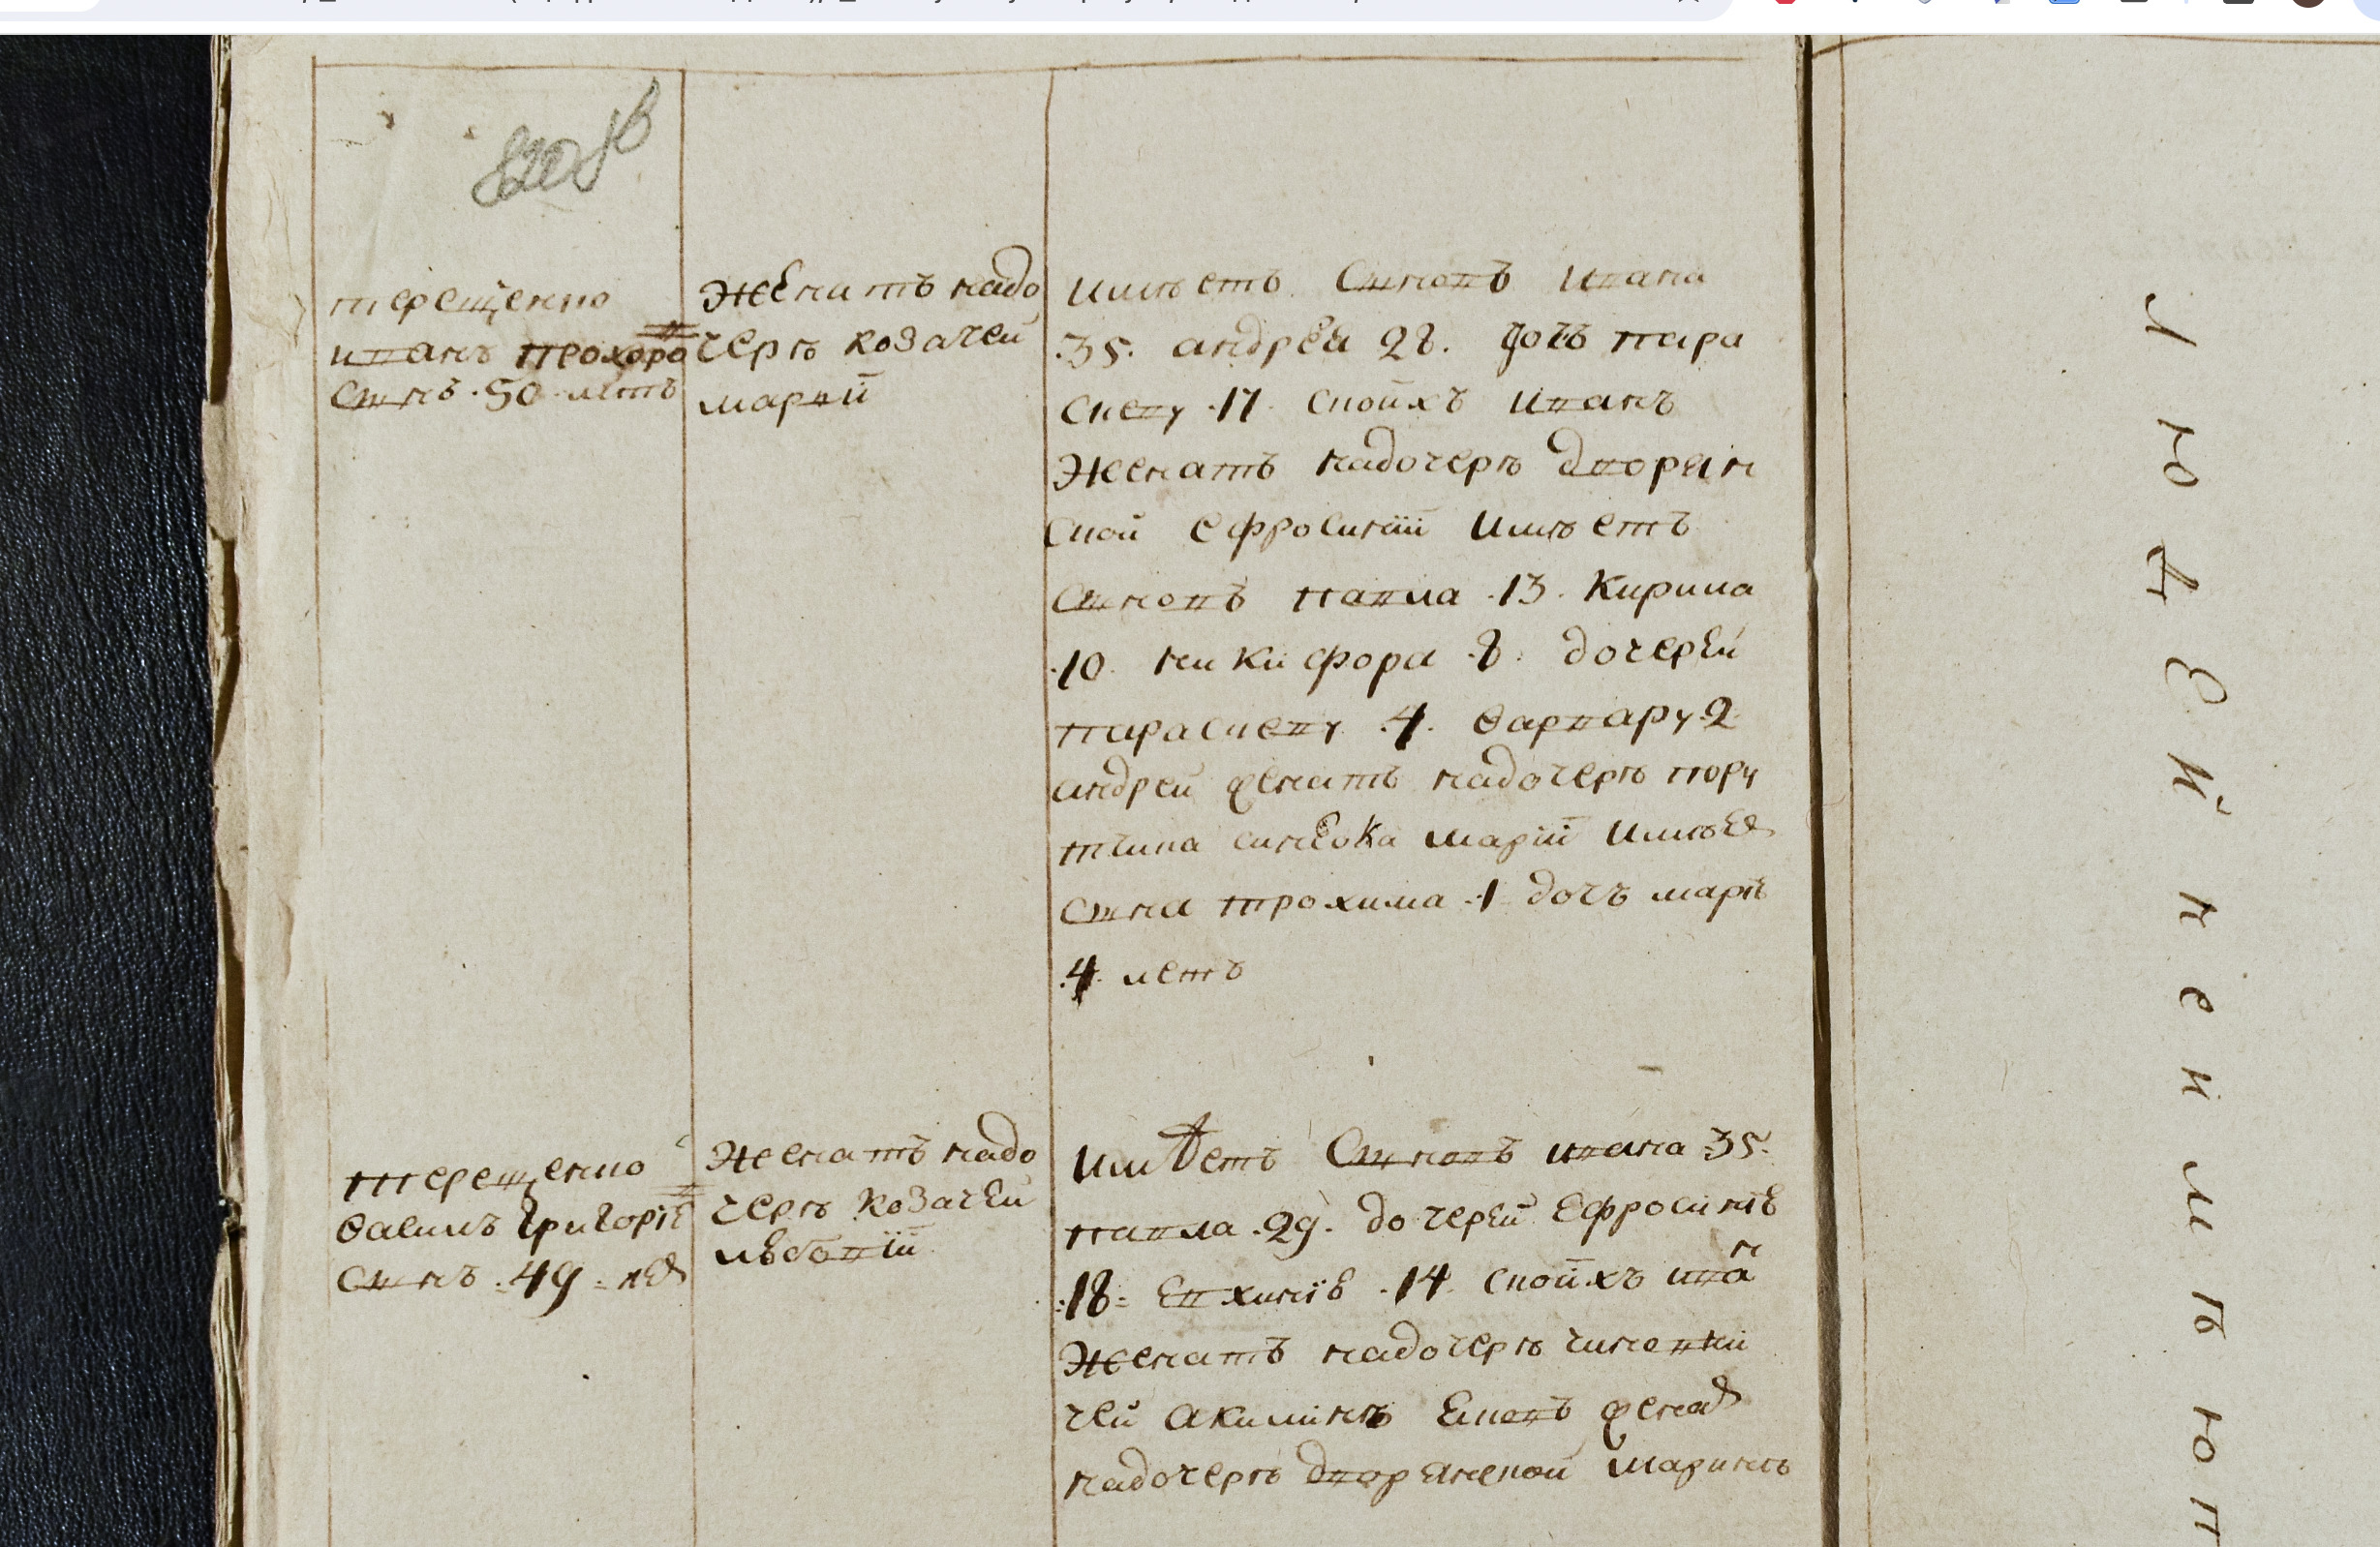 терещенко
иванъ прохоро
Сынъ 50 летъ
Женатъ надо
черѣ козачей
марѣи
имѣетъ Сыновъ Ивана
.35. андрея 28. дочь пара
скеву .17. с коихъ Иванъ
Женатъ надочерѣ дворян
ской Ефросинїи Имѣетъ
Сыновъ павла .13. Кирила
.10. никифора .8. дочерей
параскеву .4. Варвару .2.
андрей женатъ надочерѣ пору
тчика марїи Имѣет
Сына трохима .1 дочъ марїю
.4. летъ
терещенко
Василъ григорїе
Сынъ .49. лет
Женатъ надо
черѣ козачей
Имѣетъ Сыновъ ивана .35.
павла .29. дочерей Ефросинїю
.18. Евхимїю .14. с коихъ иван
Женатъ надочерѣ чиновни
чей Акилинѣ женат
надочерѣ дворянской маринѣ
Л ю д е й н е и м ѣ ю т